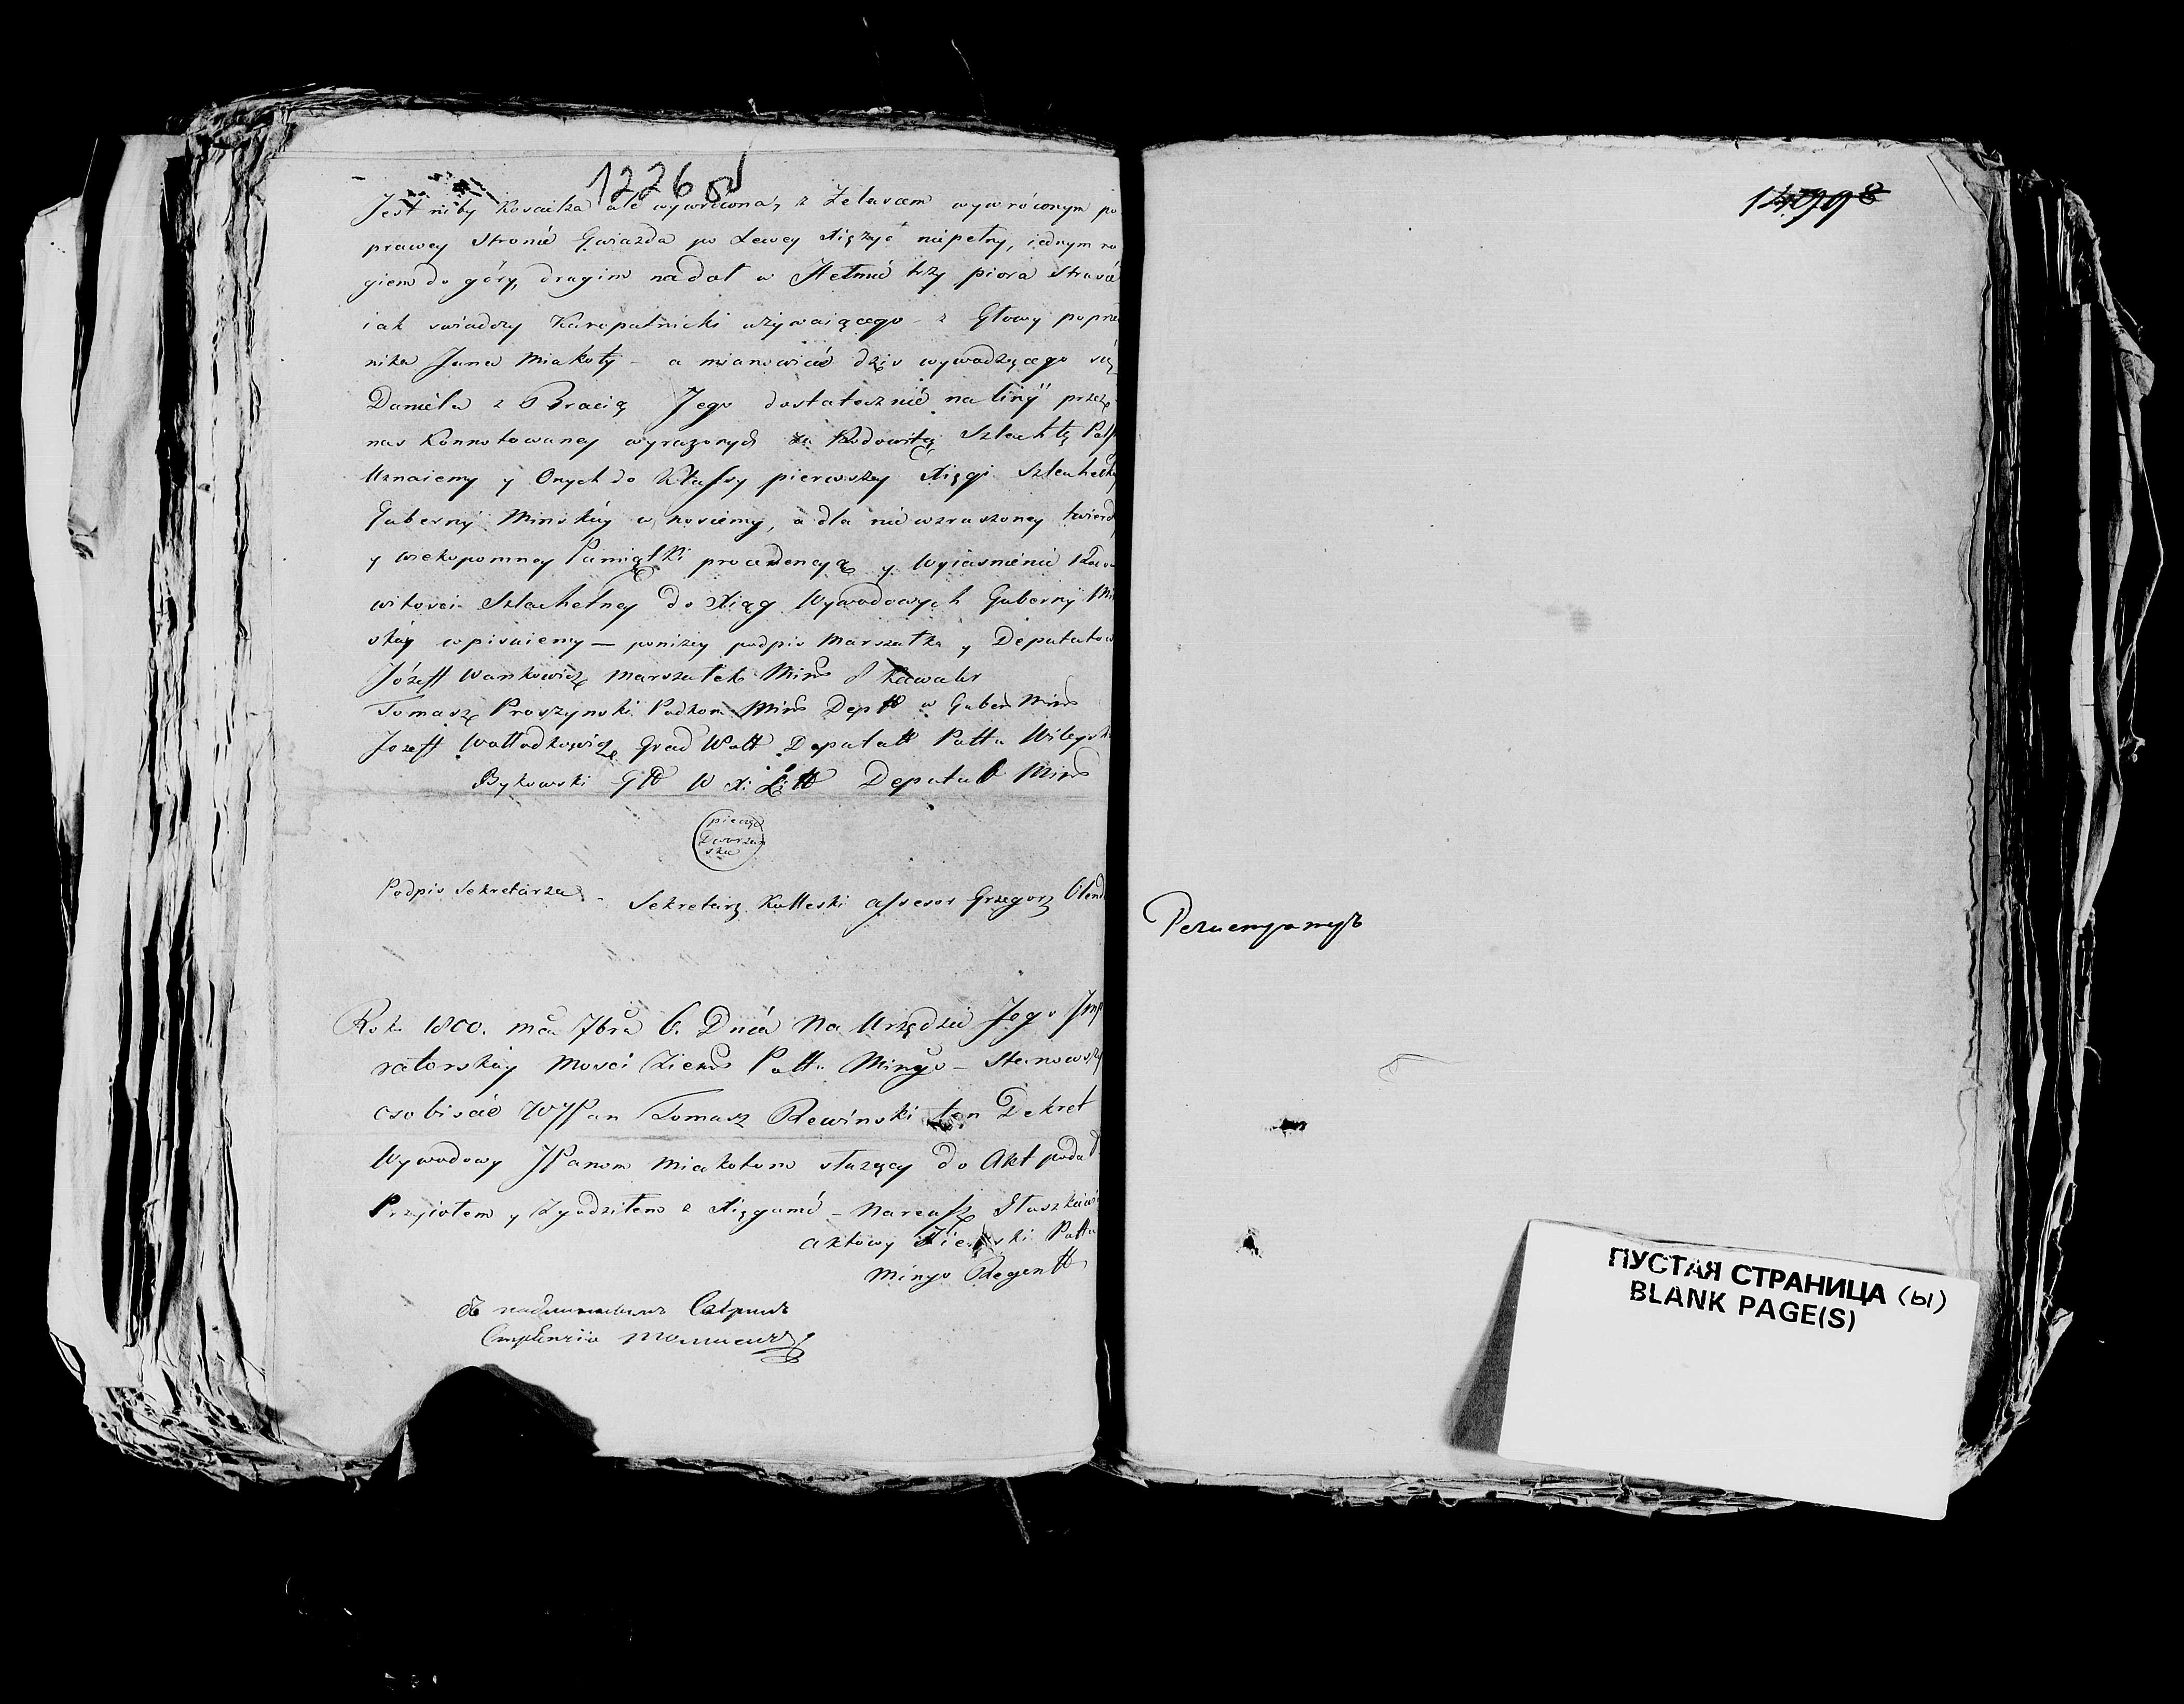 1226 об
Jest niby Kosaika ale wywrócona, z Zelascem wywróconym po
prawey stronie Gwiazda po Lewey Xiężyc niepełny, iednym ro
giem do góry, drugim nadoł w Hełmie trzy piora Strusie
iak swiadczy Kuropatnicki używaiącego z Głowy poprze
nika Jana Miakoty - a mianowicie dziś wywodzącego się
Daniela z Bracią Jego dostatecznie na linij przez
nas Konnotowaney wyrażonych za Rodowitą Szlachtę
Uznaiemy y Onych do Klassy pierwszey Xięgi Szlachecky
Gubernij Minskiey wnosiemy, a dla niewzruszoney twierd
y wiekopomney Pamiątki procedencyą y Wyiasnienie
witosci Szlachetney do Xiąg Wywodowych Guberny Mi
skiey wpisuiemy — poniżey podpis Marszałka y Deputatow
Józeff Wankowicz Marszałek Mins Kawaler
Tomasz Proszynski Podkom Mins Dep w Guber Mins
Jozeff Wołłodkowicz Grad Wott Deputatt Pattu Wileysk
Bykowski Deputat Mins
pieczęć
Dworzań
ska
Podpis Sekretarza - Sekretarz Kolleski assesor Grzegorz
Roku 1800. mca 7bra 6. Dnia Na Urzędzie Jego Jmp
ratorskiey Mosci Ziems Pattu Mingo - Stanowszy
osobiscie WJPan Tomasz Rewinski ten Dekret
Wywodowy JPanom Miakotom służący do Akt podał
Przyiołem y Zgodziłem z Xięgami -
aktowy Ziemski Pattu
Mingo Regentt
Съ подлиннымъ
140998
Регистраторъ
ПУСТАЯ СТРАНИЦА (Ы)
BLANK PAGE(S)